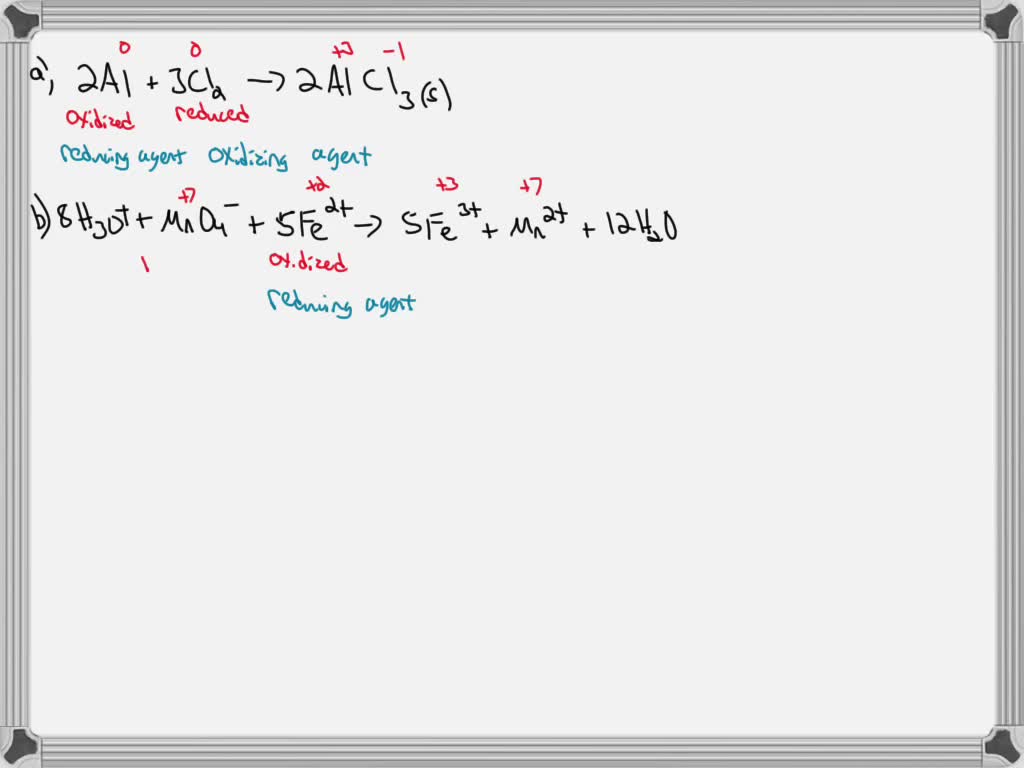 0 0 +3 -1
a), 2Al + 3Cl2 → 2AlCl3(s)
oxidized reduced
reducing agent oxidizing agent
+7 +2 +3 +7
b) 8H3O+ + MnO4- + 5Fe2+ → 5Fe3+ + Mn2+ + 12H2O
\ oxidized
reducing agent